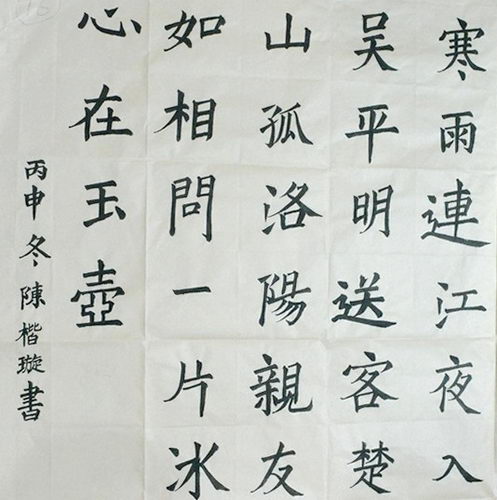 寒雨連江夜入
吴平明送客楚
山孤洛陽親友
如相問一片冰
心在玉壺
丙申冬陳楷璇書